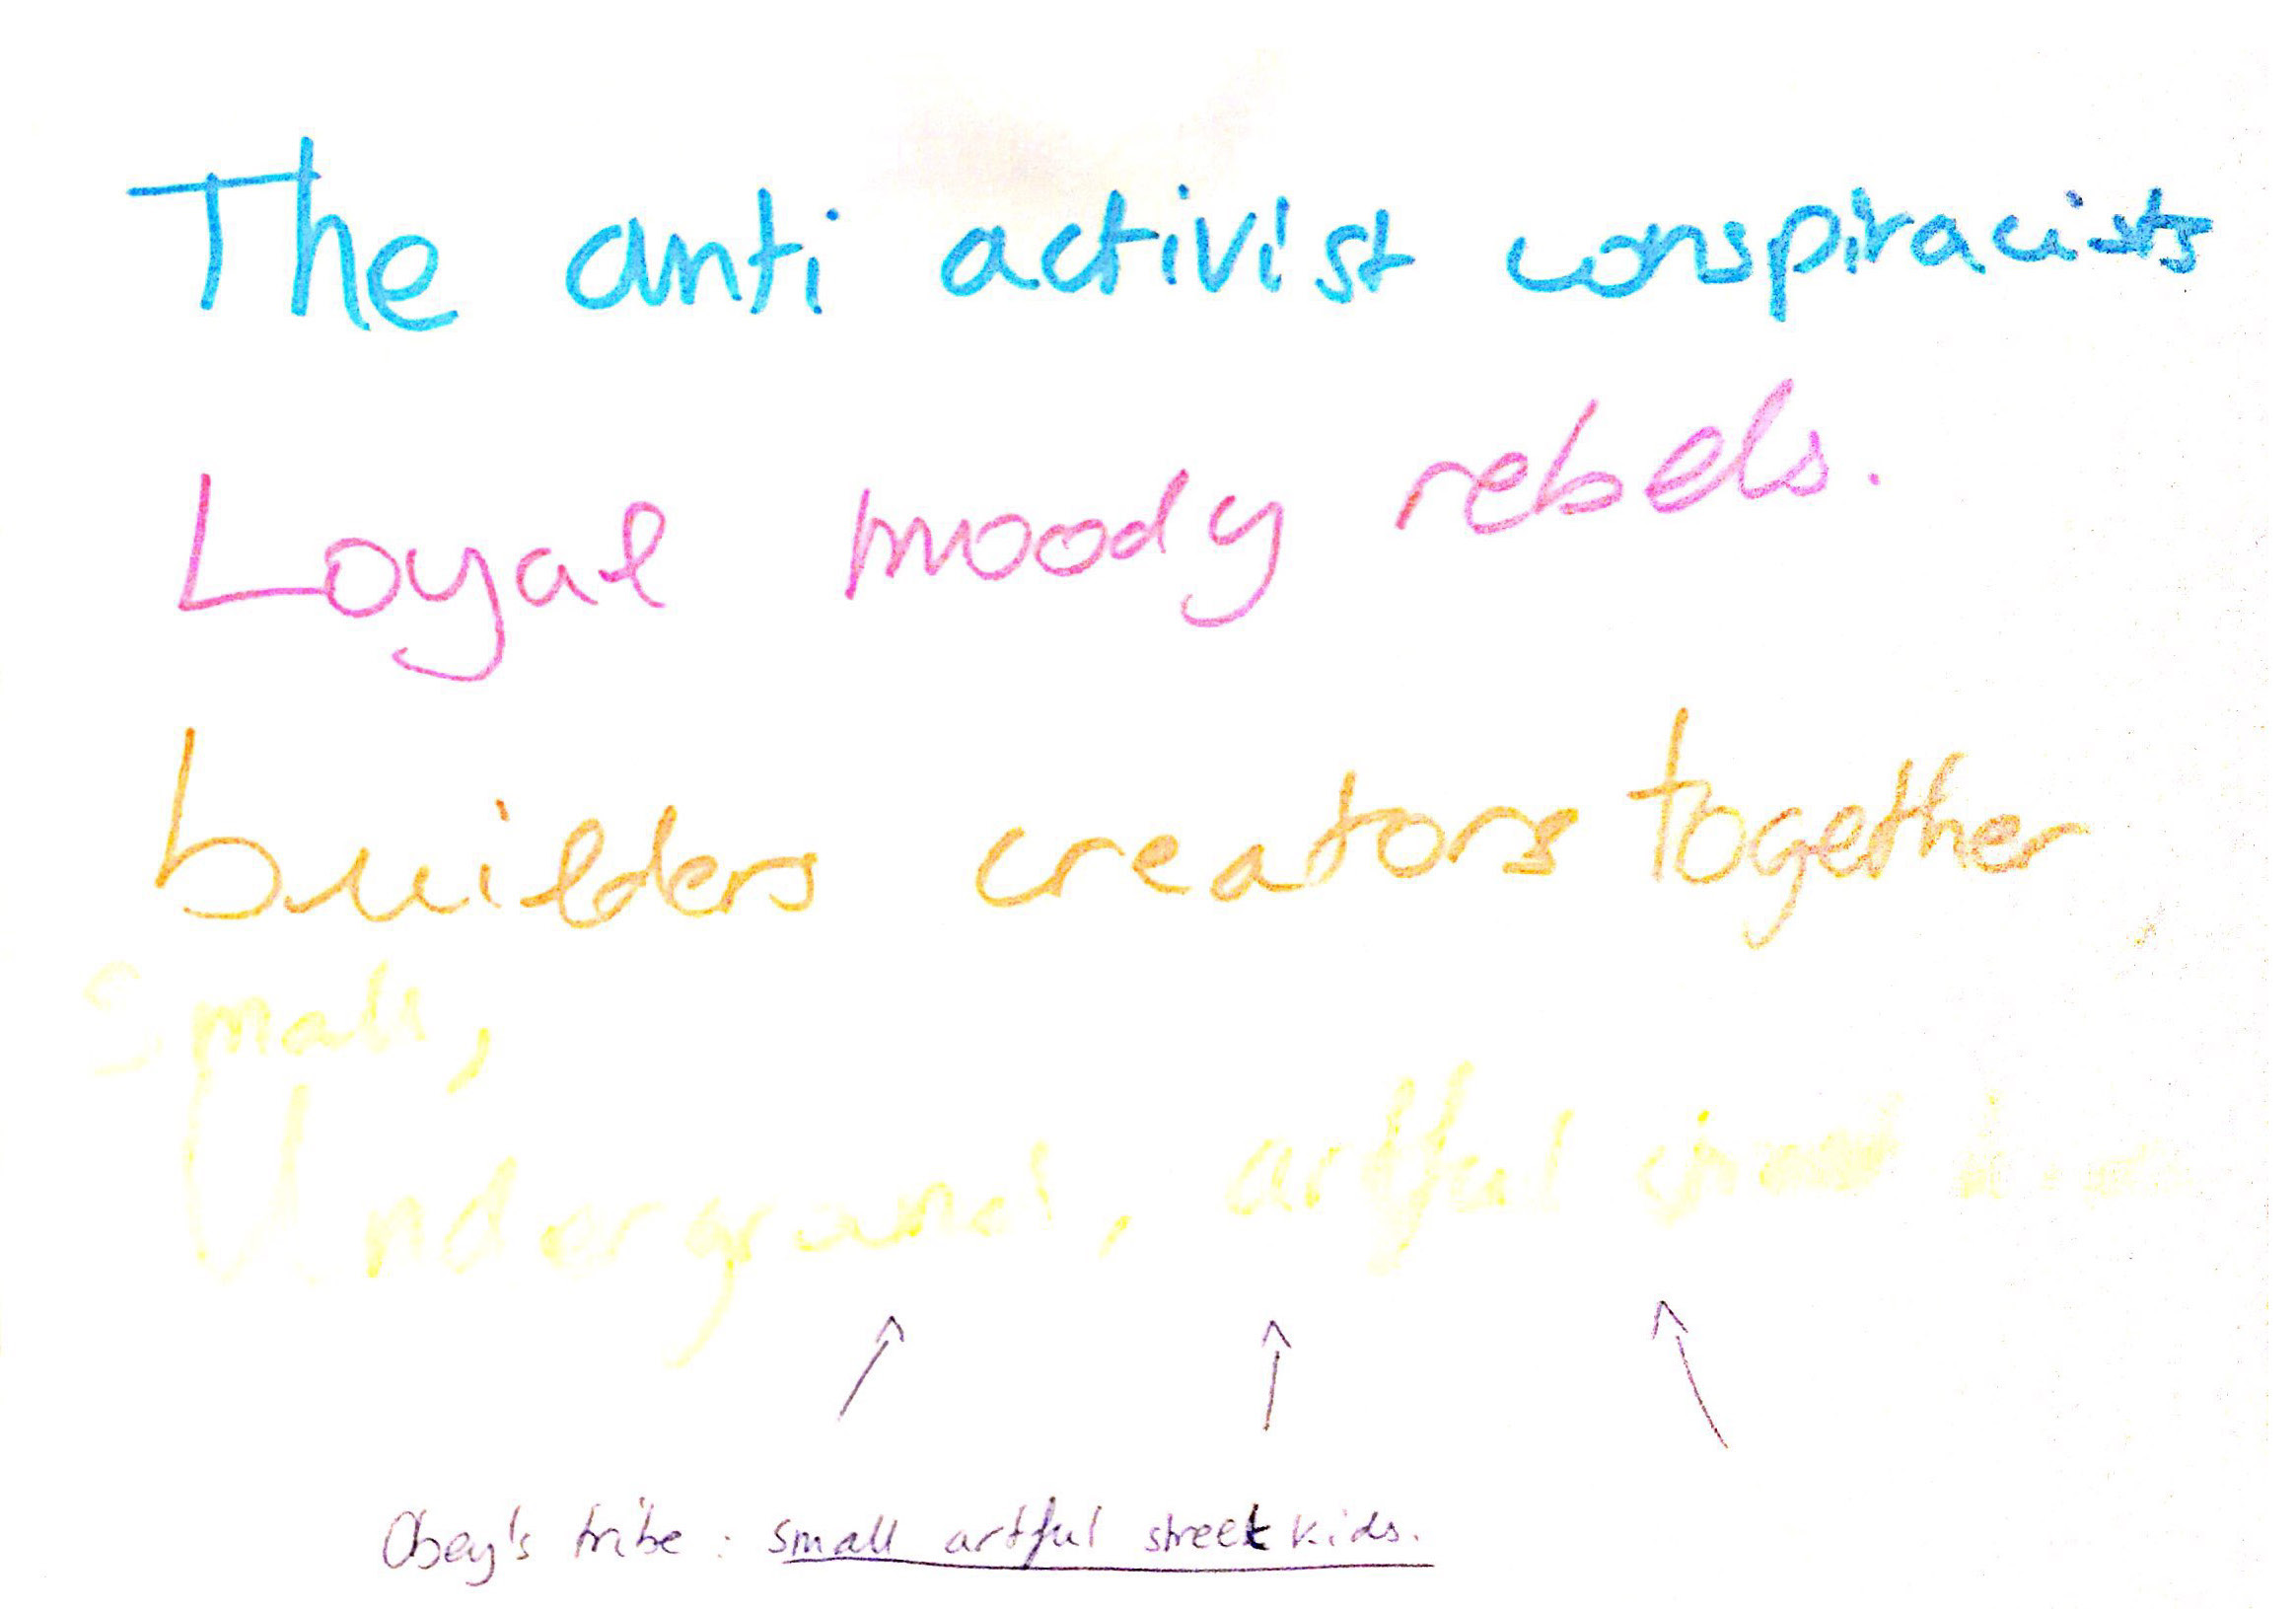 The anti activist conspiracists
Loyal moody rebels.
builders creators together
small,
Underground, artful street
Obey's tribe : small artful street kids.